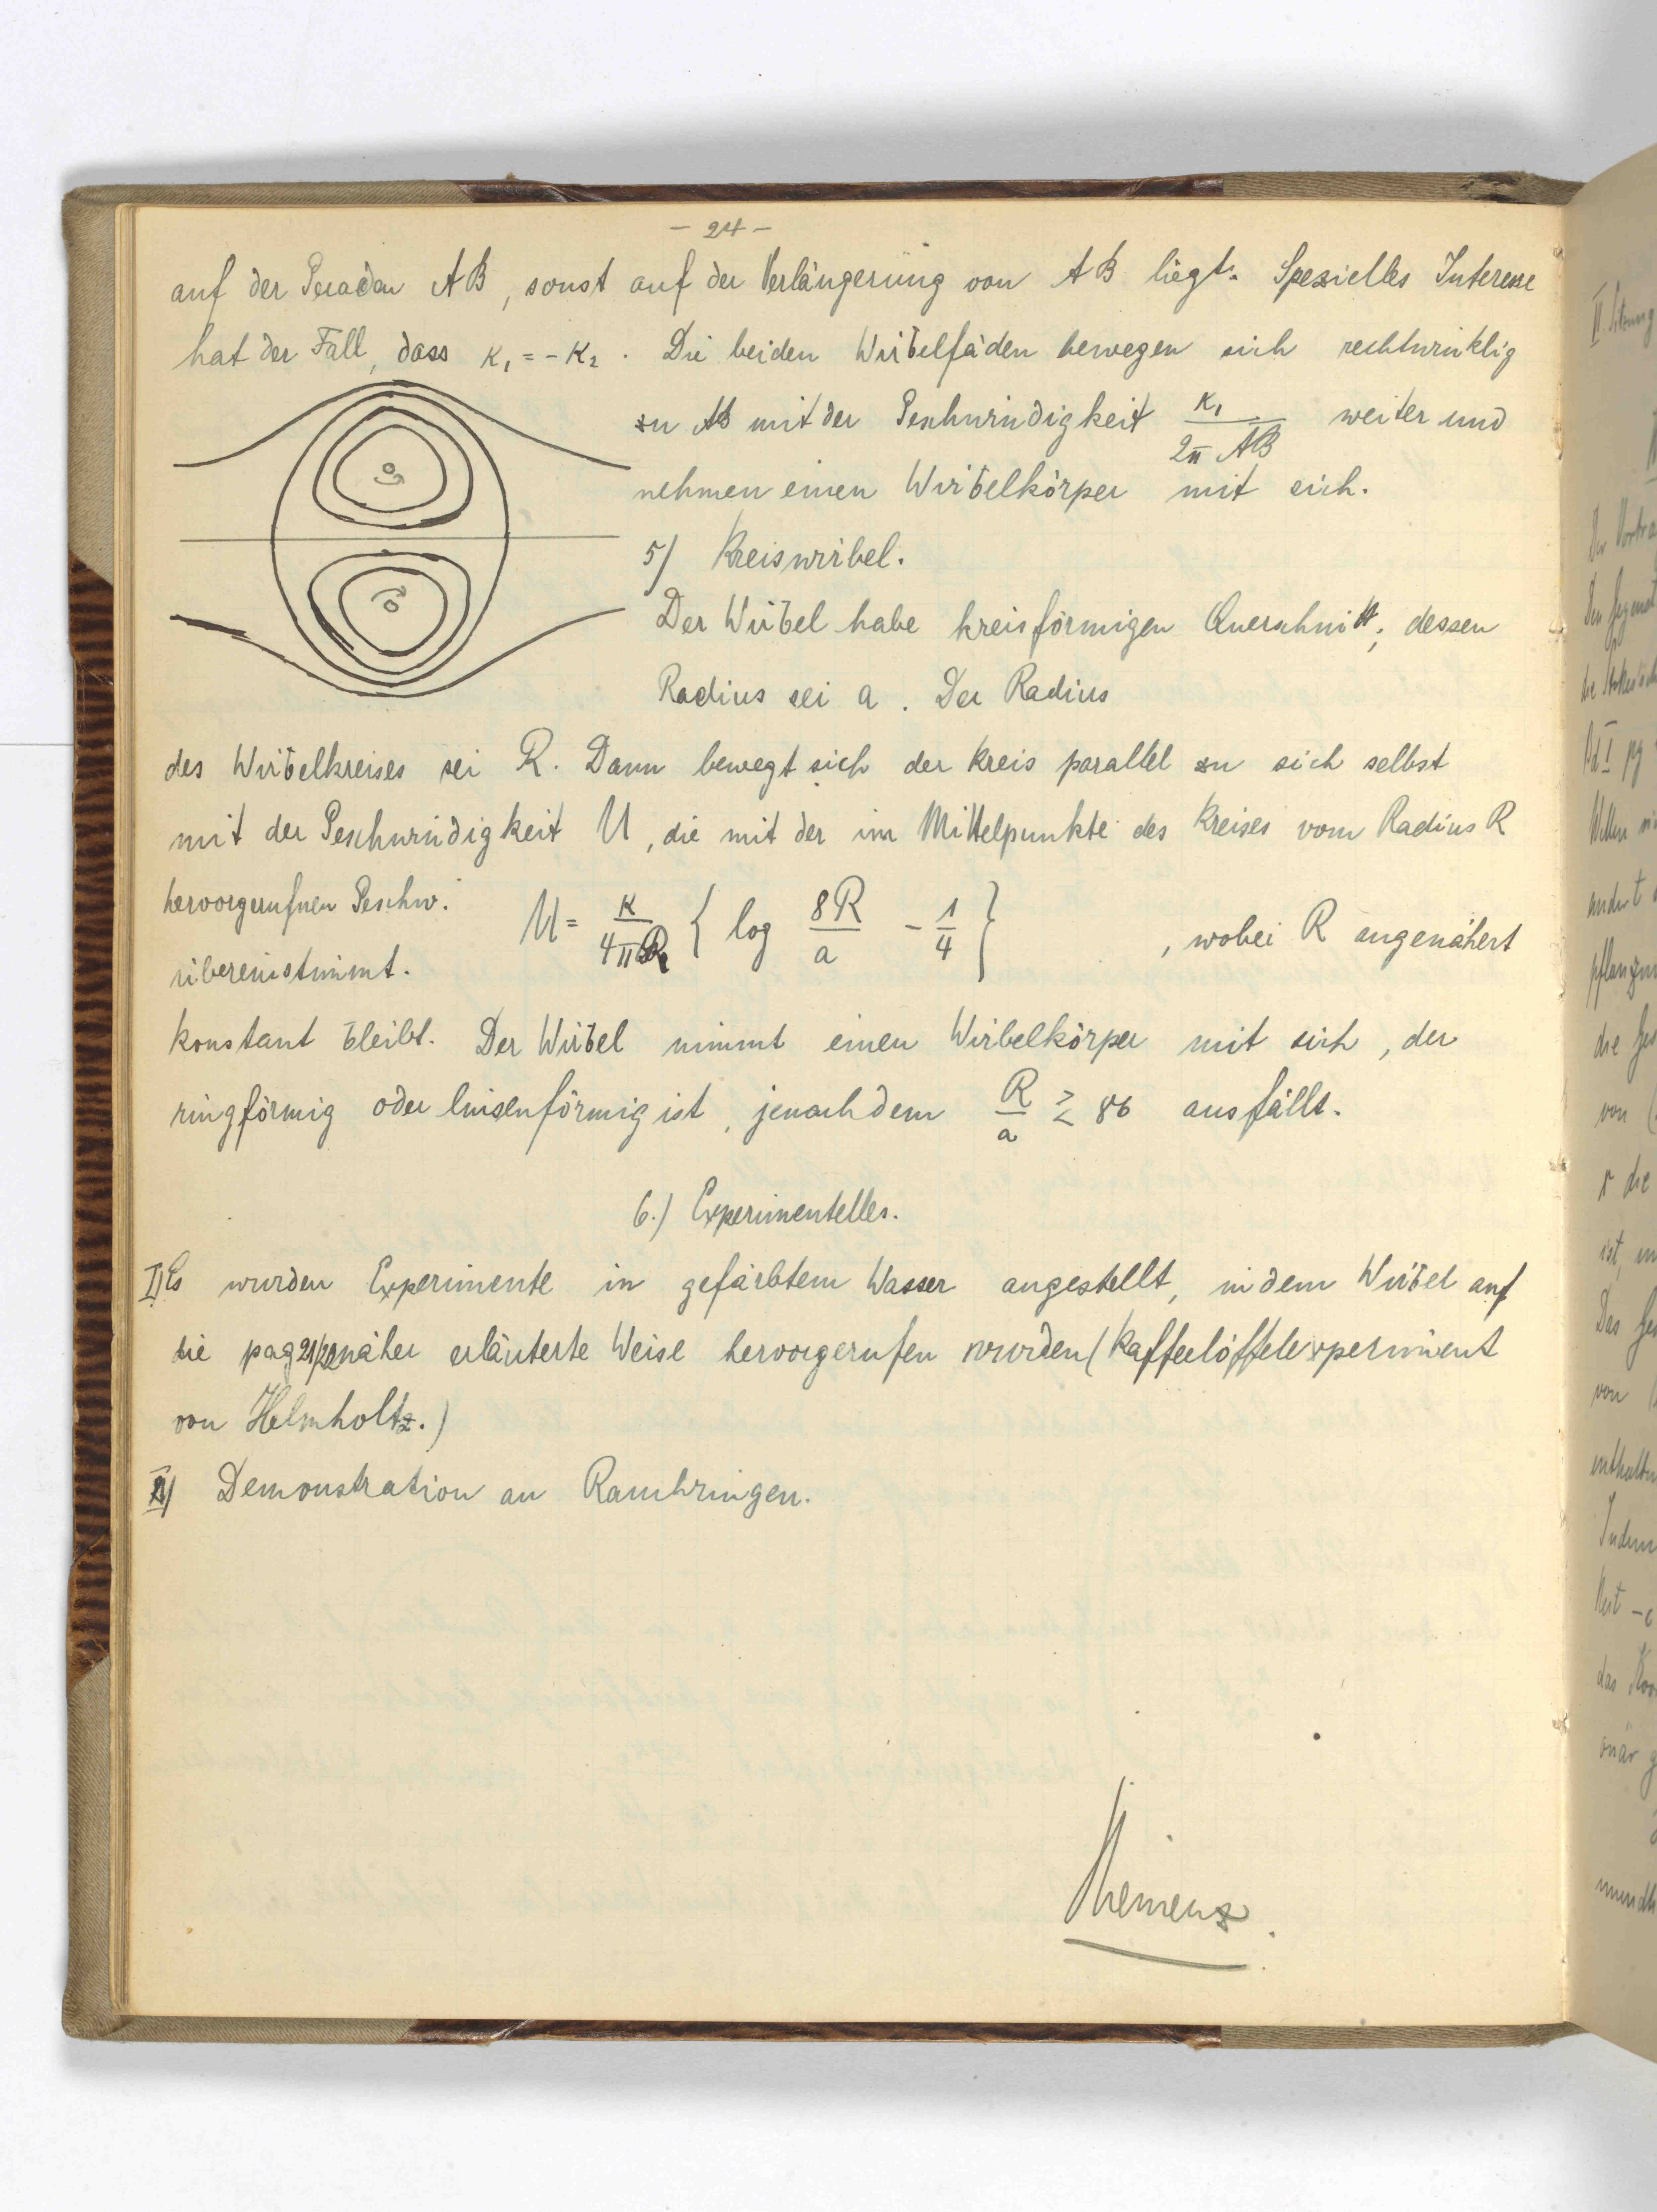 - 24 -
auf der Geraden AB, sonst auf der Verlängerung von AB liegt. Spezielles Interesse
hat der Fall, dass κ₁ = - κ₂. Die beiden Wirbelfäden bewegen sich rechtwinklig
zu AB mit der Geschwindigkeit κ₁ / 2π AB weiter und
nehmen einen Wirbelkörper mit sich.
5) Kreiswirbel.
Der Wirbel habe kreisförmigen Querschnitt, dessen
Radius sei a. Der Radius
des Wirbelkreises sei R. Dann bewegt sich der Kreis parallel zu sich selbst
mit der Geschwindigkeit U, die mit der im Mittelpunkte des Kreises vom Radius R
hervorgerufnen Geschw.
übereinstimmt.
U = κ / 4πR { log 8R / a - 1/4 }, wobei R angenähert
konstant bleibt. Der Wirbel nimmt einen Wirbelkörper mit sich, der
ringförmig oder linsenförmig ist, jenachdem R/a ≷ 86 ausfällt.
6.) Experimentelles.
I) Es wurden Experimente in gefärbtem Wasser angestellt, in dem Wirbel auf
die pag 21/22 näher erläuterte Weise hervorgerufen wurden (Kaffeelöffelexperiment
von Helmholtz.)
II) Demonstration an Rauchringen.
Hiemenz.